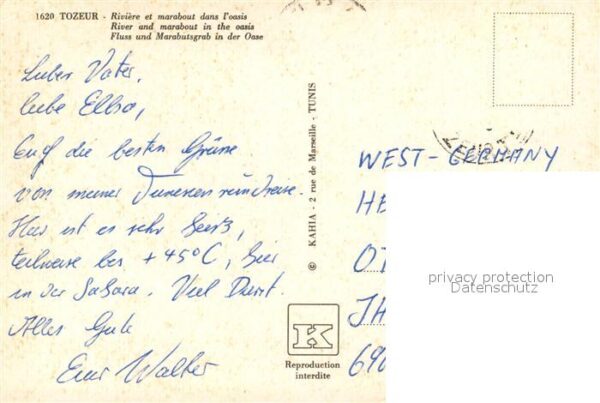 1620 TOZEUR - Rivière et marabout dans l'oasis
River and marabout in the oasis
Fluss und Marabutsgrab in der Oase
Lieber Vater,
liebe Elba,
Euch die besten Grüße
von meiner Tunesienrundreise.
Hier ist es sehr heiß,
teilweise bei + 45°C, hier
in der Sahara. Viel Durst.
Alles Gute
Euer Walter
© KAHIA - 2 rue de Marseille - TUNIS
K
Reproduction
interdite
WEST-GERMANY
HE
OT
JH
690
privacy protection
Datenschutz